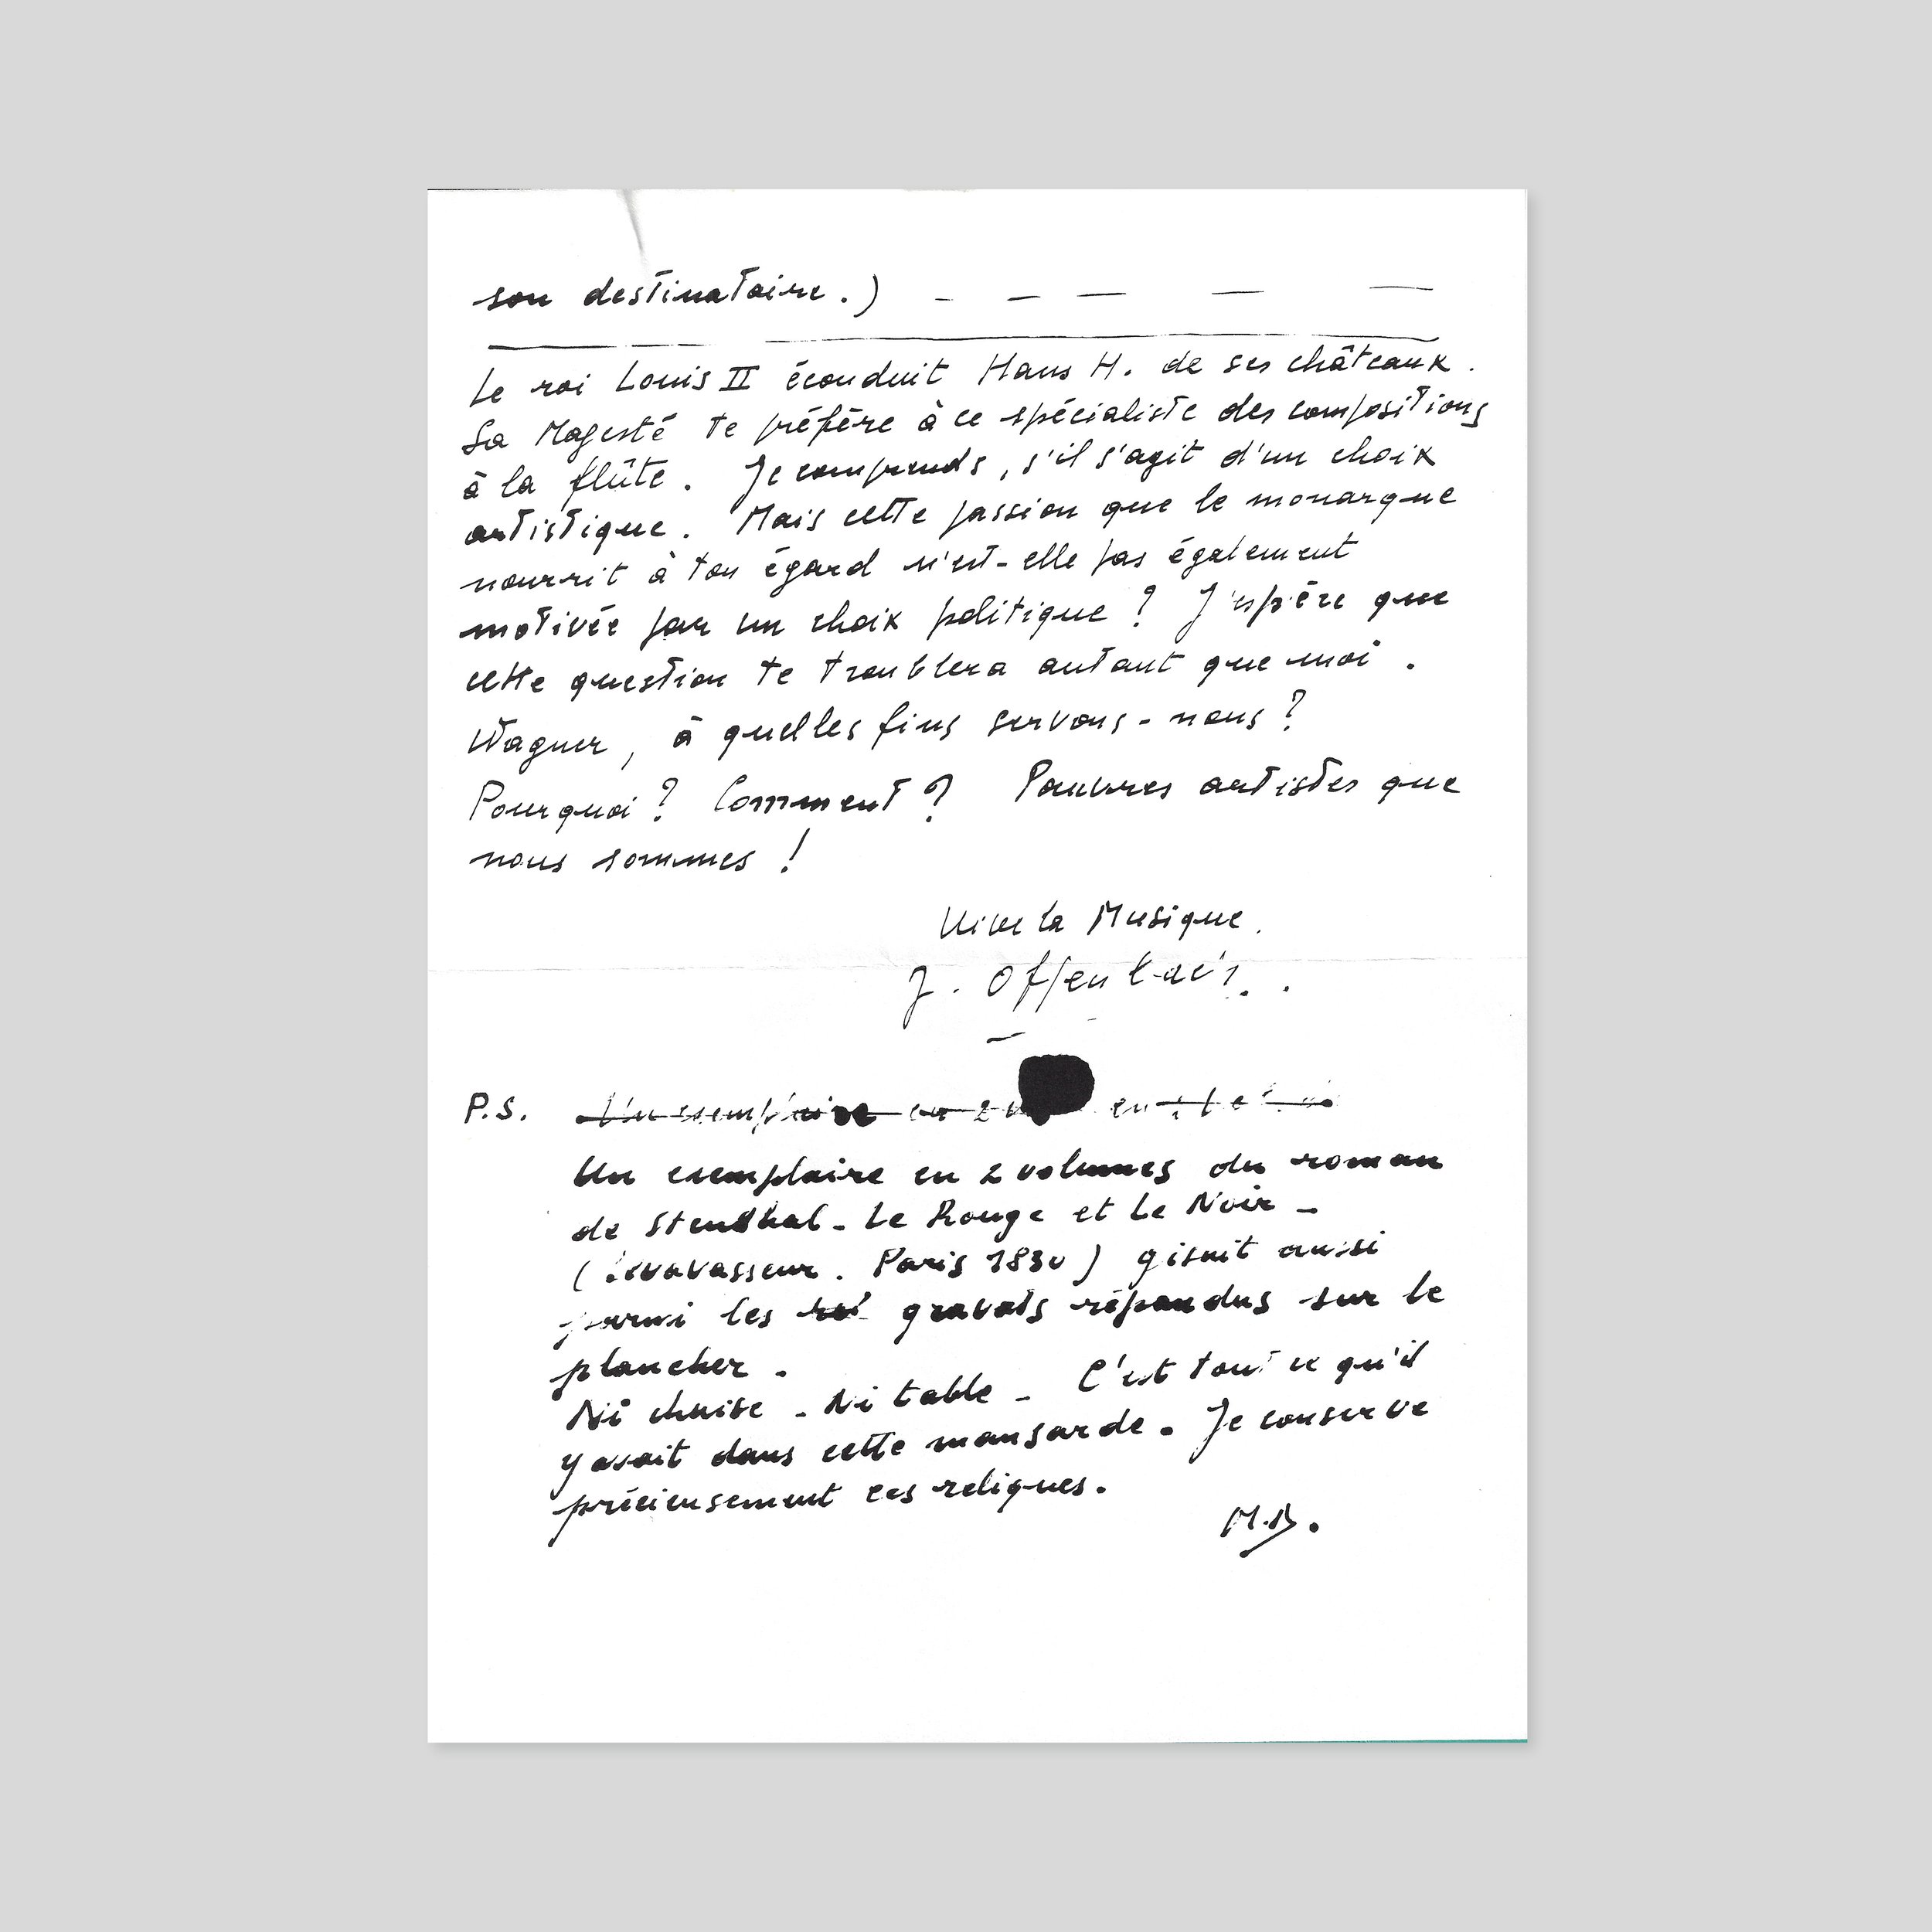 son destinataire.) - - - - -
Le roi Louis II éconduit Hans H. de ses châteaux.
Sa Magesté te préfère à ce spécialiste des compositions
à la flûte. Je comprends, s'il s'agit d'un choix
artistique. Mais cette passion que le monarque
nourrit à ton égard n'est-elle pas également
motivée par un choix politique ? J'espère que
cette question te troublera autant que moi.
Wagner, à quelles fins servons-nous ?
Pourquoi ? Comment ? Pauvres artistes que
nous sommes !
Vive la Musique.
J. Offenbach.
P.S. Un exemplaire en 2
Un exemplaire en 2 volumes du roman
de Stendhal - Le Rouge et Le Noir -
(Levavasseur. Paris 1830) gisait aussi
parmi les gravats répandus sur le
plancher.
Ni chaise - Ni table - C'est tout ce qu'il
y avait dans cette mansarde. Je conserve
précieusement ces reliques.
M.B.